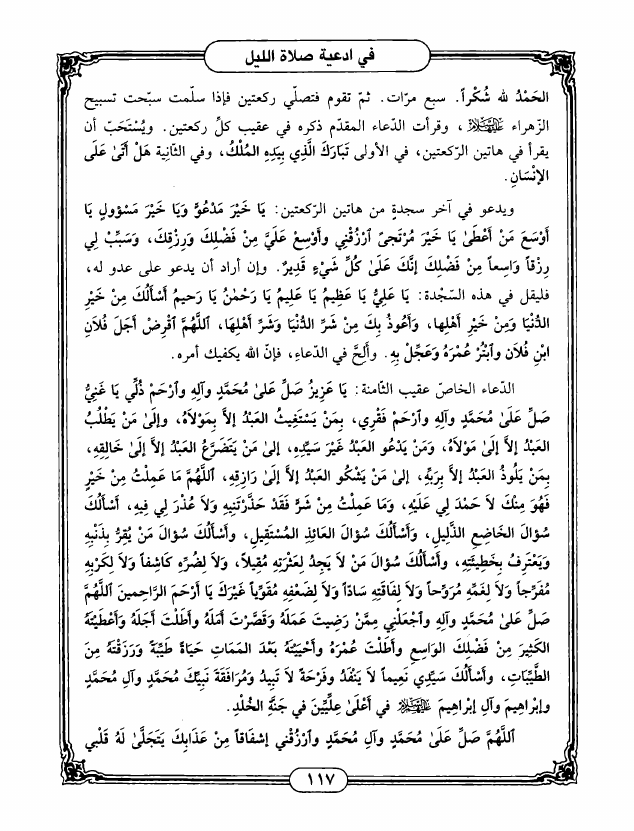 في ادعية صلاة الليل
الحَمْدُ لله شُكْراً. سبع مرّات. ثمّ تقوم فتصلّي ركعتين فإذا سلّمت سبّحت تسبيح
الزهراء عليها السلام، وقرأت الدّعاء المقدّم ذكره في عقيب كلّ ركعتين. ويُسْتَحَبّ أن
يقرأ في هاتين الرّكعتين، في الأولى تَبَارَكَ الَّذِي بِيَدِهِ المُلْكُ، وفي الثّانية هَلْ أَتَىٰ عَلَى
الإنْسَانِ.
ويدعو في آخر سجدةٍ من هاتين الرّكعتين: يَا خَيْرَ مَدْعُوٍّ وَيَا خَيْرَ مَسْؤُولٍ يَا
أَوْسَعَ مَنْ أَعْطَىٰ يَا خَيْرَ مُرْتَجىً ٱرْزُقْنِي وأَوْسِعْ عَلَيَّ مِنْ فَضْلِكَ وَرِزْقِكَ، وَسَبِّبْ لِي
رِزْقاً وَاسِعاً مِنْ فَضْلِكَ إنَّكَ عَلَىٰ كُلِّ شَيْءٍ قَدِيرٌ. وإن أراد أن يدعو على عدو له،
فليقل في هذه السّجْدة: يَا عَلِيُّ يَا عَظِيمُ يَا عَلِيمُ يَا رَحْمٰنُ يَا رَحيمُ أَسْأَلُكَ مِنْ خَيْرِ
الدُّنْيَا وَمِنْ خَيْرِ أَهْلِها، وَأَعُوذُ بِكَ مِنْ شَرِّ الدُّنْيَا وَشَرِّ أَهْلِهَا، اَللَّهُمَّ ٱقْرِضْ أَجَلَ فُلَانِ
ابْنِ فُلَانٍ وٱبْتُرْ عُمْرَهُ وَعَجِّلْ بِهِ. وأَلِحَّ في الدّعاءِ، فإنّ الله يكفيك أمره.
الدّعاء الخاصّ عقيب الثّامنة: يَا عَزِيزُ صَلِّ عَلىٰ مُحَمَّدٍ وَآلِهِ وٱرْحَمْ ذُلِّي يَا غَنِيُّ
صَلِّ عَلَىٰ مُحَمَّدٍ وآلِهِ وٱرْحَمْ فَقْرِي، بِمَنْ يَسْتَغِيثُ العَبْدُ إلاَّ بِمَوْلَاهُ، وإلَىٰ مَنْ يَطْلُبُ
العَبْدُ إلاَّ إلَىٰ مَوْلَاهُ، وَمَنْ يَدْعُو العَبْدُ غَيْرَ سَيِّدِهِ، إلىٰ مَنْ يَتَضَرَّعُ العَبْدُ إلاَّ إلَىٰ خَالِقِهِ،
بِمَنْ يَلُوذُ العَبْدُ إلاَّ بِرَبِّهِ، إلىٰ مَنْ يَشْكُو العَبْدُ إلاَّ إلَىٰ رَازِقِهِ، اَللَّهُمَّ مَا عَمِلْتُ مِنْ خَيْرٍ
فَهُوَ مِنْكَ لاَ حَمْدَ لِي عَلَيْهِ، وَمَا عَمِلْتُ مِنْ شَرٍّ فَقَدْ حَذَّرْتَنِيهِ وَلاَ عُذْرَ لِي فِيهِ، أَسْأَلُكَ
سُؤَالَ الخَاضِعِ الذَّلِيلِ، وَأَسْأَلُكَ سُؤَالَ العَائِذِ المُسْتَقِيلِ، وأَسْأَلُكَ سُؤَالَ مَنْ يُقِرُّ بِذَنْبِهِ
وَيَعْتَرِفُ بِخَطِيئَتِهِ، وأَسْأَلُكَ سُؤَالَ مَنْ لَا يَجِدُ لِعَثْرَتِهِ مُقِيلاً، وَلَا لِضُرِّهِ كَاشِفاً وَلاَ لِكَرْبِهِ
مُفَرِّجاً وَلَا لِغَمِّهِ مُرَوِّحاً وَلَا لِفَاقَتِهِ سَادّاً وَلَا لِضَعْفِهِ مُقَوِّياً غَيْرَكَ يَا أَرْحَمَ الرَّاحِمِينَ اَللَّهُمَّ
صَلِّ عَلىٰ مُحَمَّدٍ وآلِهِ وٱجْعَلْنِي مِمَّنْ رَضِيتَ عَمَلَهُ وَقَصَّرْتَ أَمَلَهُ وأَطَلْتَ أَجَلَهُ وَأَعْطَيْتَهُ
الكَثِيرَ مِنْ فَضْلِكَ الوَاسِعِ وأَطَلْتَ عُمْرَهُ وأَحْيَيْتَهُ بَعْدَ المَمَاتِ حَيَاةً طَيِّبَةً وَرَزَقْتَهُ مِنَ
الطَّيِّبَاتِ، وأَسْأَلُكَ سَيِّدِي نَعِيماً لَا يَنْفَدُ وَفَرْحَةً لاَ تَبِيدُ وَمُرَافَقَةَ نَبِيِّكَ مُحَمَّدٍ وَآلِ مُحَمَّدٍ
وإبْراهِيمَ وَآلِ إبْراهِيمَ عليهم السلام في أَعْلَىٰ عِلِّيِّينَ في جَنَّةِ الخُلْدِ.
اَللَّهُمَّ صَلِّ عَلَىٰ مُحَمَّدٍ وَآلِ مُحَمَّدٍ وٱرْزُقْنِي إشْفَاقاً مِنْ عَذَابِكَ يَتَجَلَّىٰ لَهُ قَلْبِي
١١٧